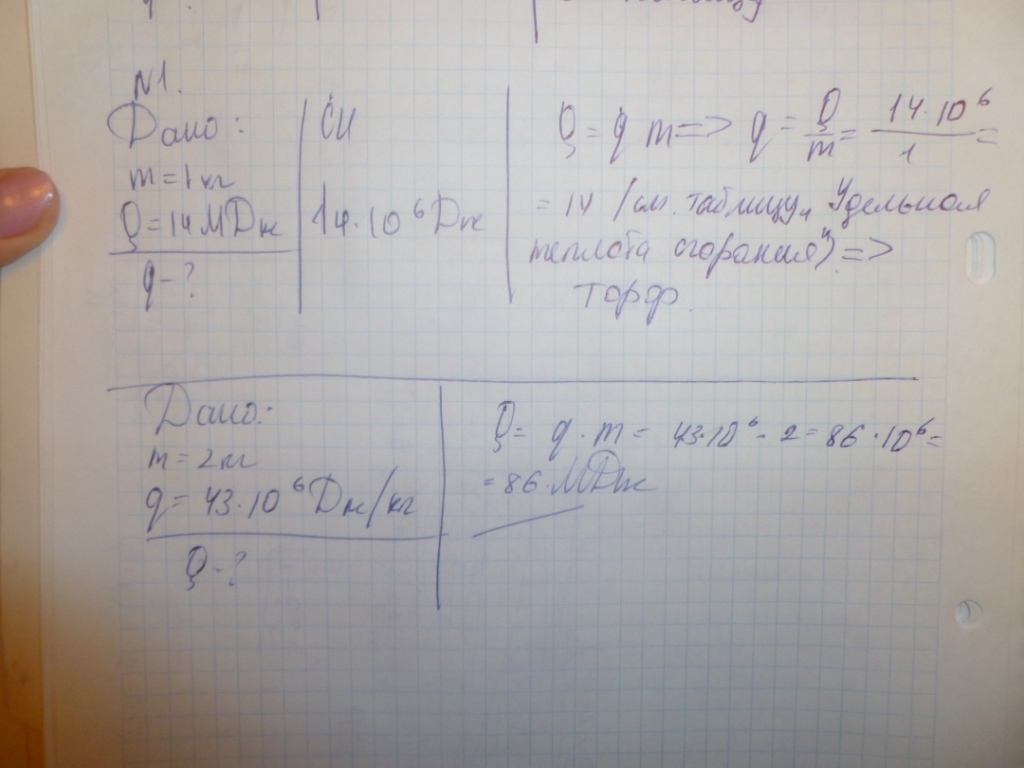 N1.
Дано:
m = 1 кг
Q = 14 МДж
q - ?
СИ
14·10⁶ Дж
Q = q m => q = Q/m = 14·10⁶/1 =
= 14 /см. таблицу „Удельная
теплота сгорания") =>
торф.
Дано:
m = 2 кг
q = 43·10⁶ Дж/кг
Q - ?
Q = q · m = 43·10⁶ · 2 = 86·10⁶ =
= 86 МДж